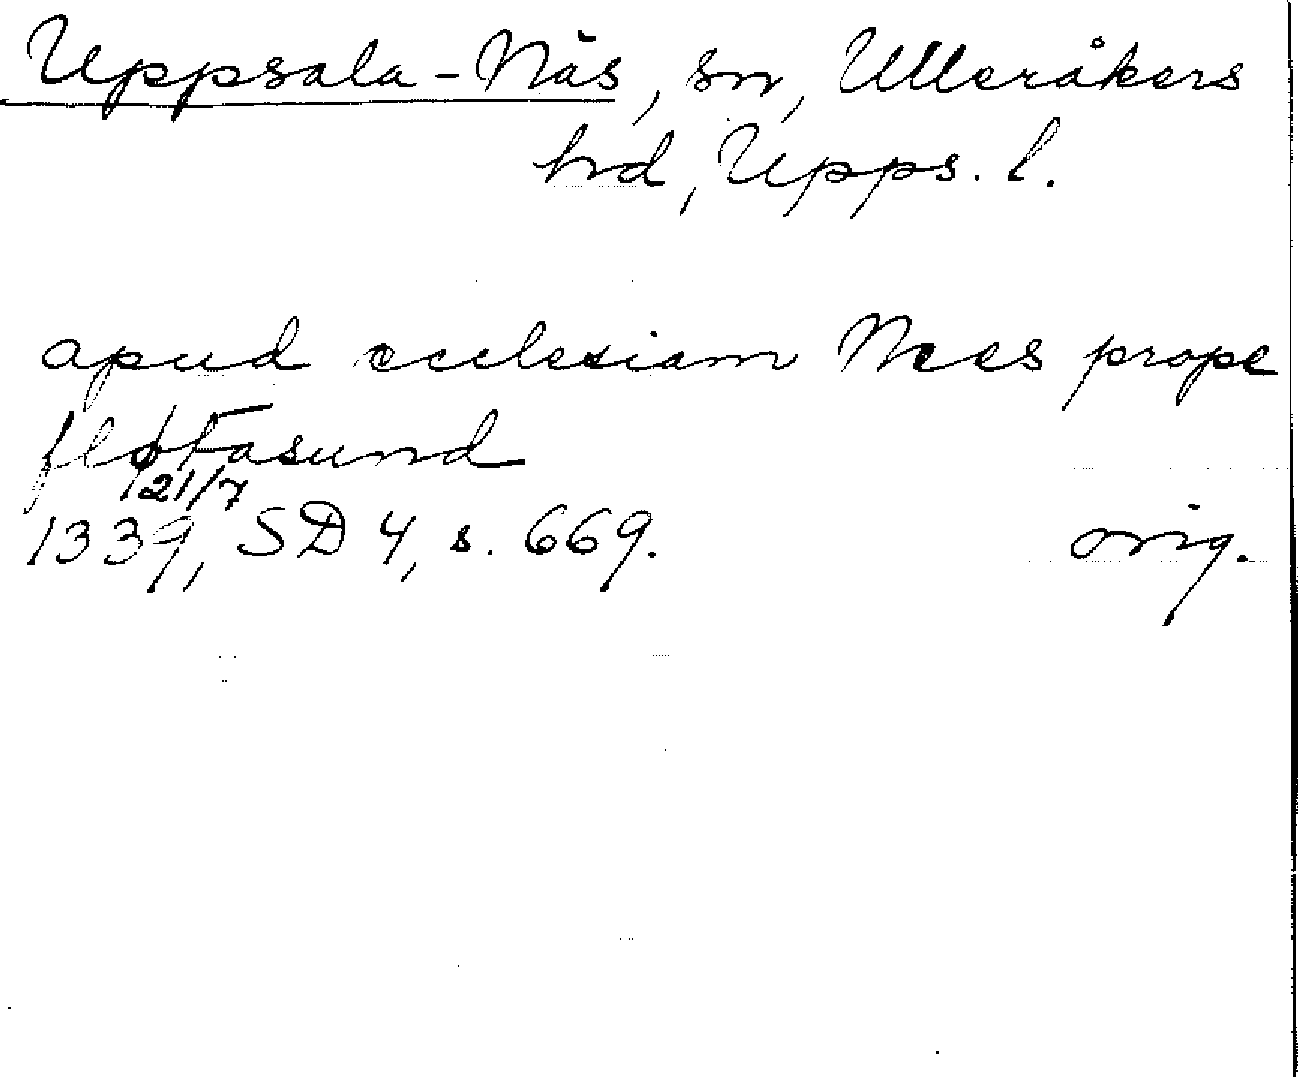 Uppsala-Näs, sn, Ulleråkers
hd, Upps. l.
apud ecclesiam Nees prope
fløtasund
21/7
1339, SD 4, s. 669. orig.